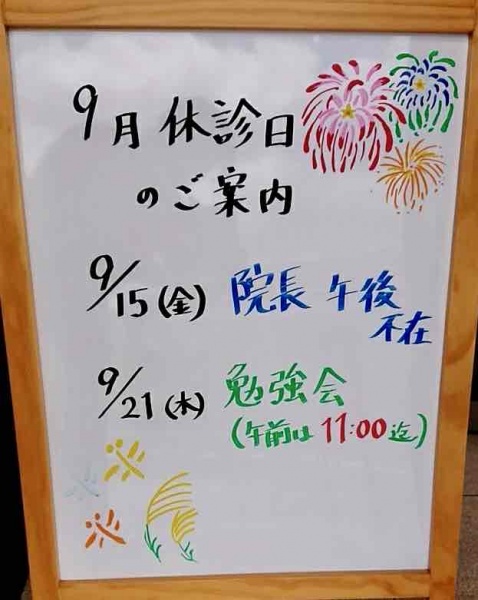 9月休診日
のご案内
9/15(金) 院長 午後
不在
9/21(木) 勉強会
(午前は 11:00迄)